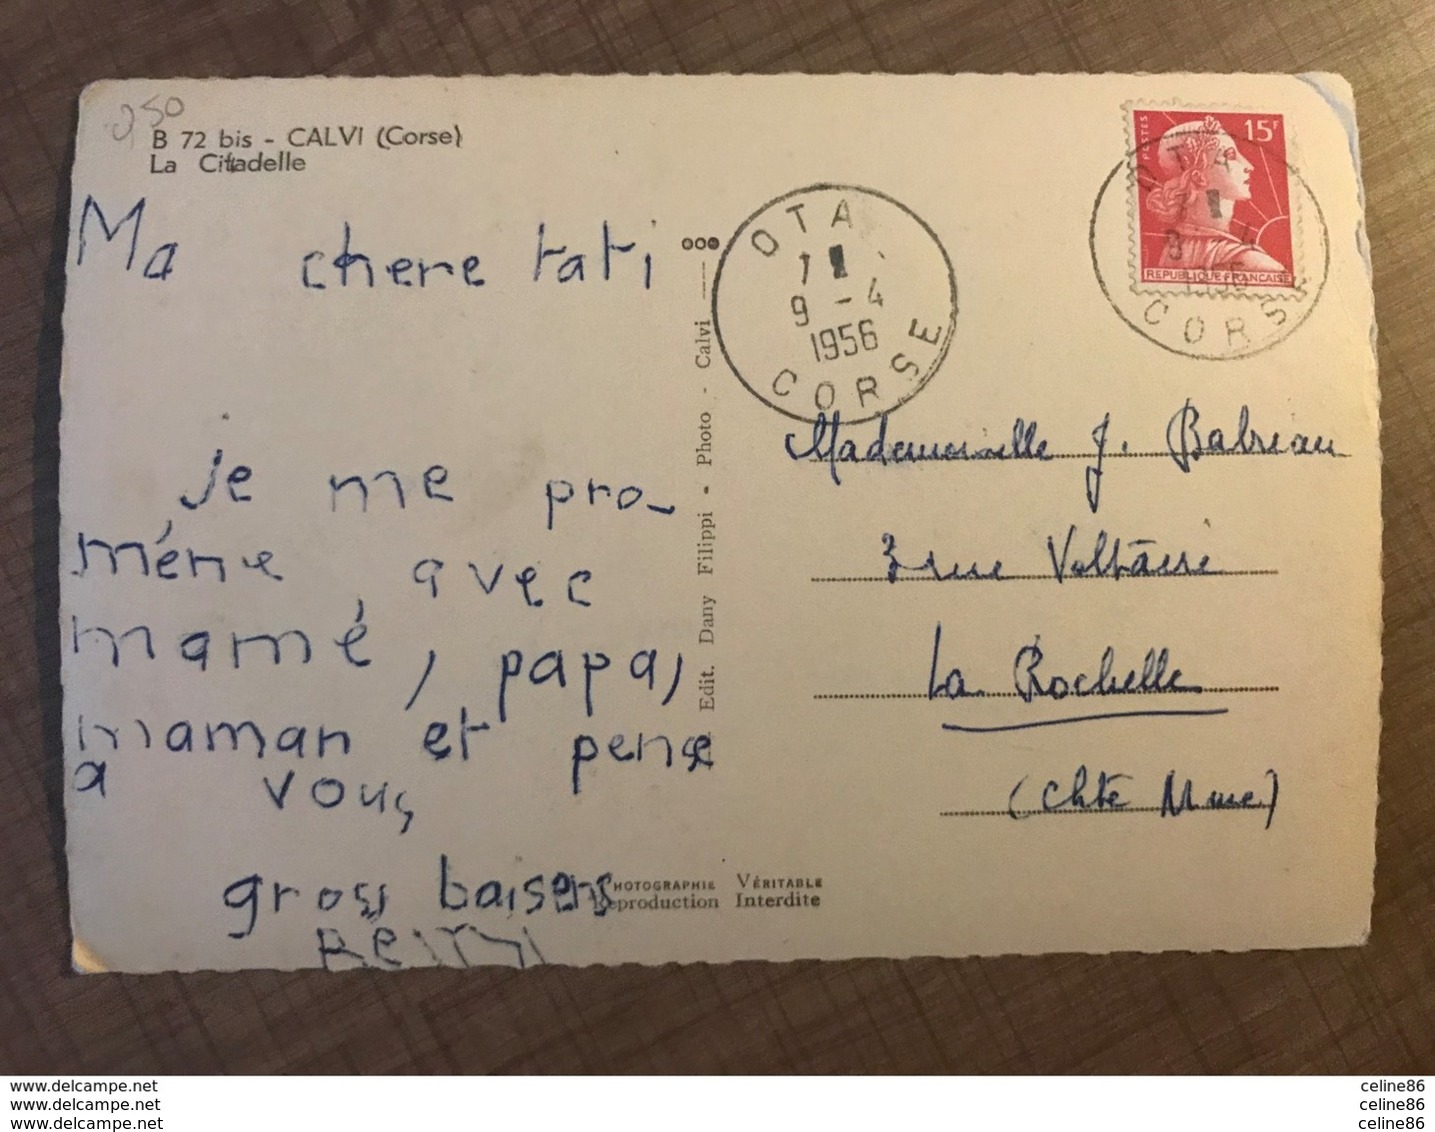 0,50
B 72 bis - CALVI (Corse)
La Citadelle
Ma chere tati
je me pro-
mène, avec
mamé, papa,
maman et pense
a vous,
gros baisers
Edit. Dany Filippi - Photo - Calvi
PHOTOGRAPHIE VÉRITABLE
Reproduction Interdite
OTA
9 - 4
1956
CORSE
POSTES
15F
REPUBLIQUE FRANCAISE
OTA
9 4
1956
CORSE
Mademoiselle J. Babreau
3 rue Voltaire
La Rochelle
(Chte Mme)
delcampe.net
delcampe.net
delcampe.net
celine86
celine86
celine86